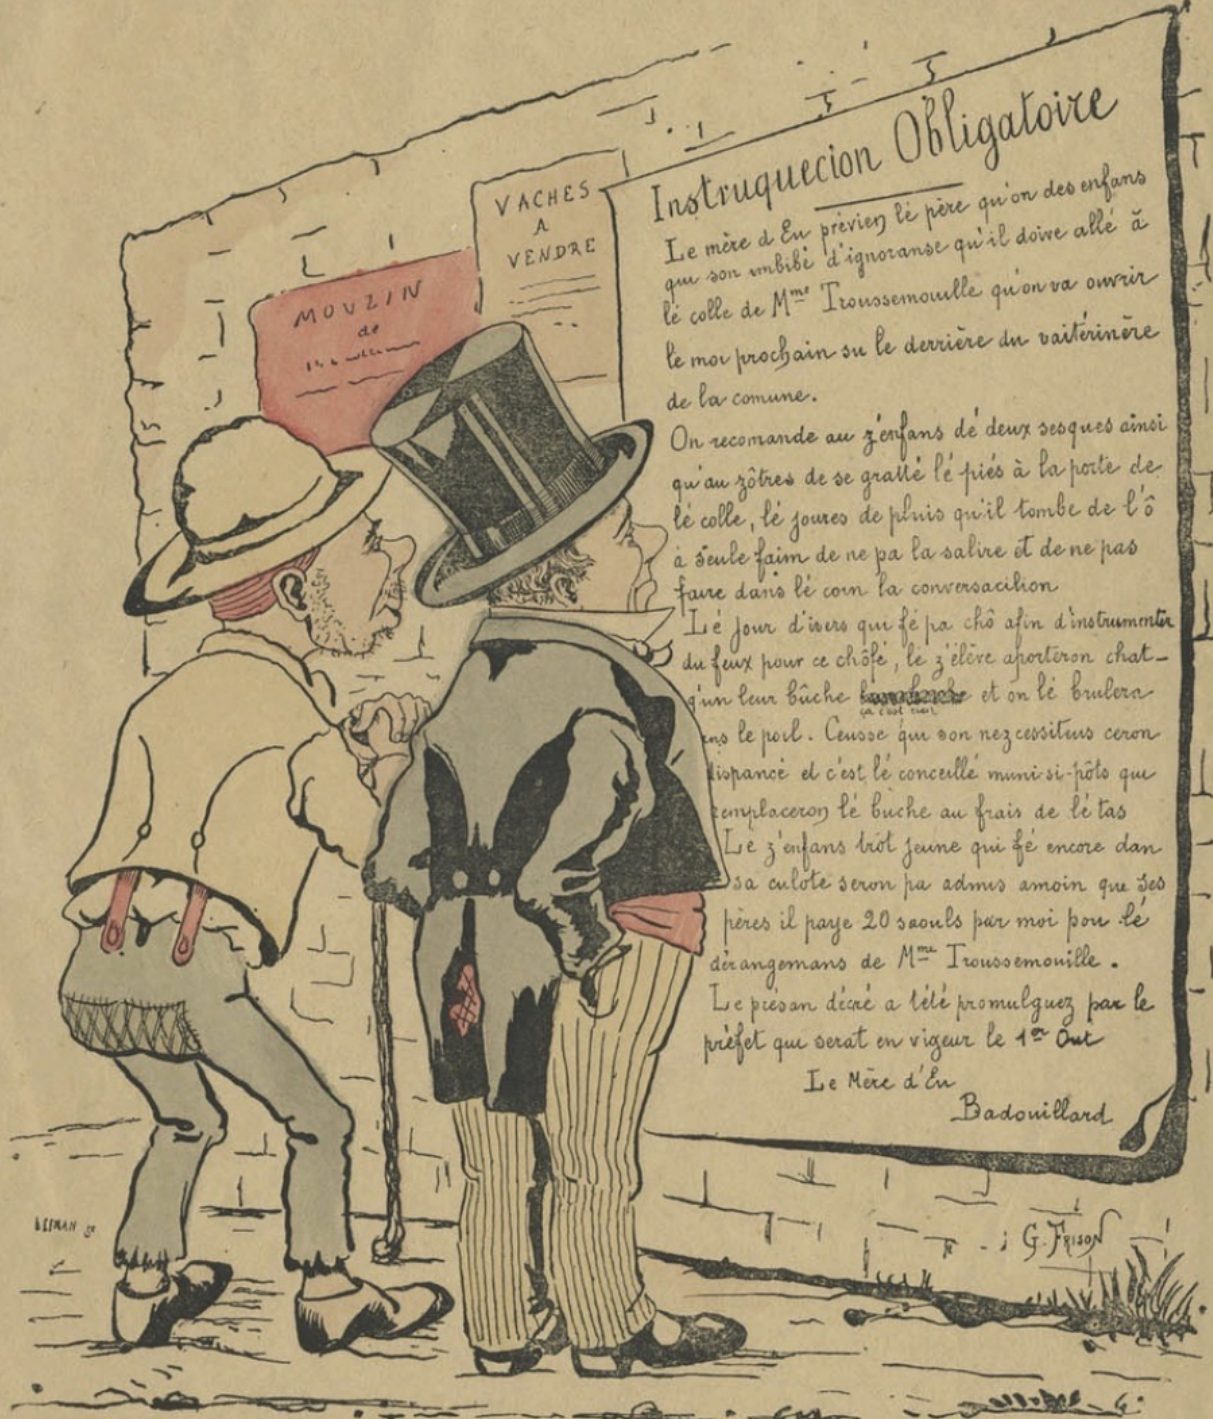 VACHES
A
VENDRE
MOUZIN
de
Instruquecion Obligatoire
Le mère d Eu prévien lé père qu'on des enfans
qui son imbibé d'ignoranse qu'il doive allé à
lé colle de Mme Troussemouille qu'on va ouvrir
le moi prochain su le derrière du vaitérinère
de la comune.
On recomande au z'enfans dé deux sesques ainsi
qu'au zôtres de se gratté lé piés à la porte de
lé colle, lé joures de pluis qu'il tombe de l'ô
à seule faim de ne pa la salire et de ne pas
faire dans lé coin la conversacilion
Lé jour d'ivers qui fé pa chô afin d'instrumenter
du feux pour ce chôfé, lé z'élève aporteron chat-
q'un leur bûche et on lé brulera
ns le poil. Ceusse qui son nezcessiteus ceron
dispancé et c'est lé conceillé muni-si-pôts qui
remplaceron lé bûche au frais de lé tas
Le z'enfans trot jeune qui fé encore dan
sa culote seron pa admis amoin que ses
pères il paye 20 saouls par moi pou lé
dérangemans de Mme Troussemouille.
Le présan décré a tété promulguez par le
préfet qui serat en vigeur le 1er Out
Le Mère d'Eu
Badouillard
G. FRISON